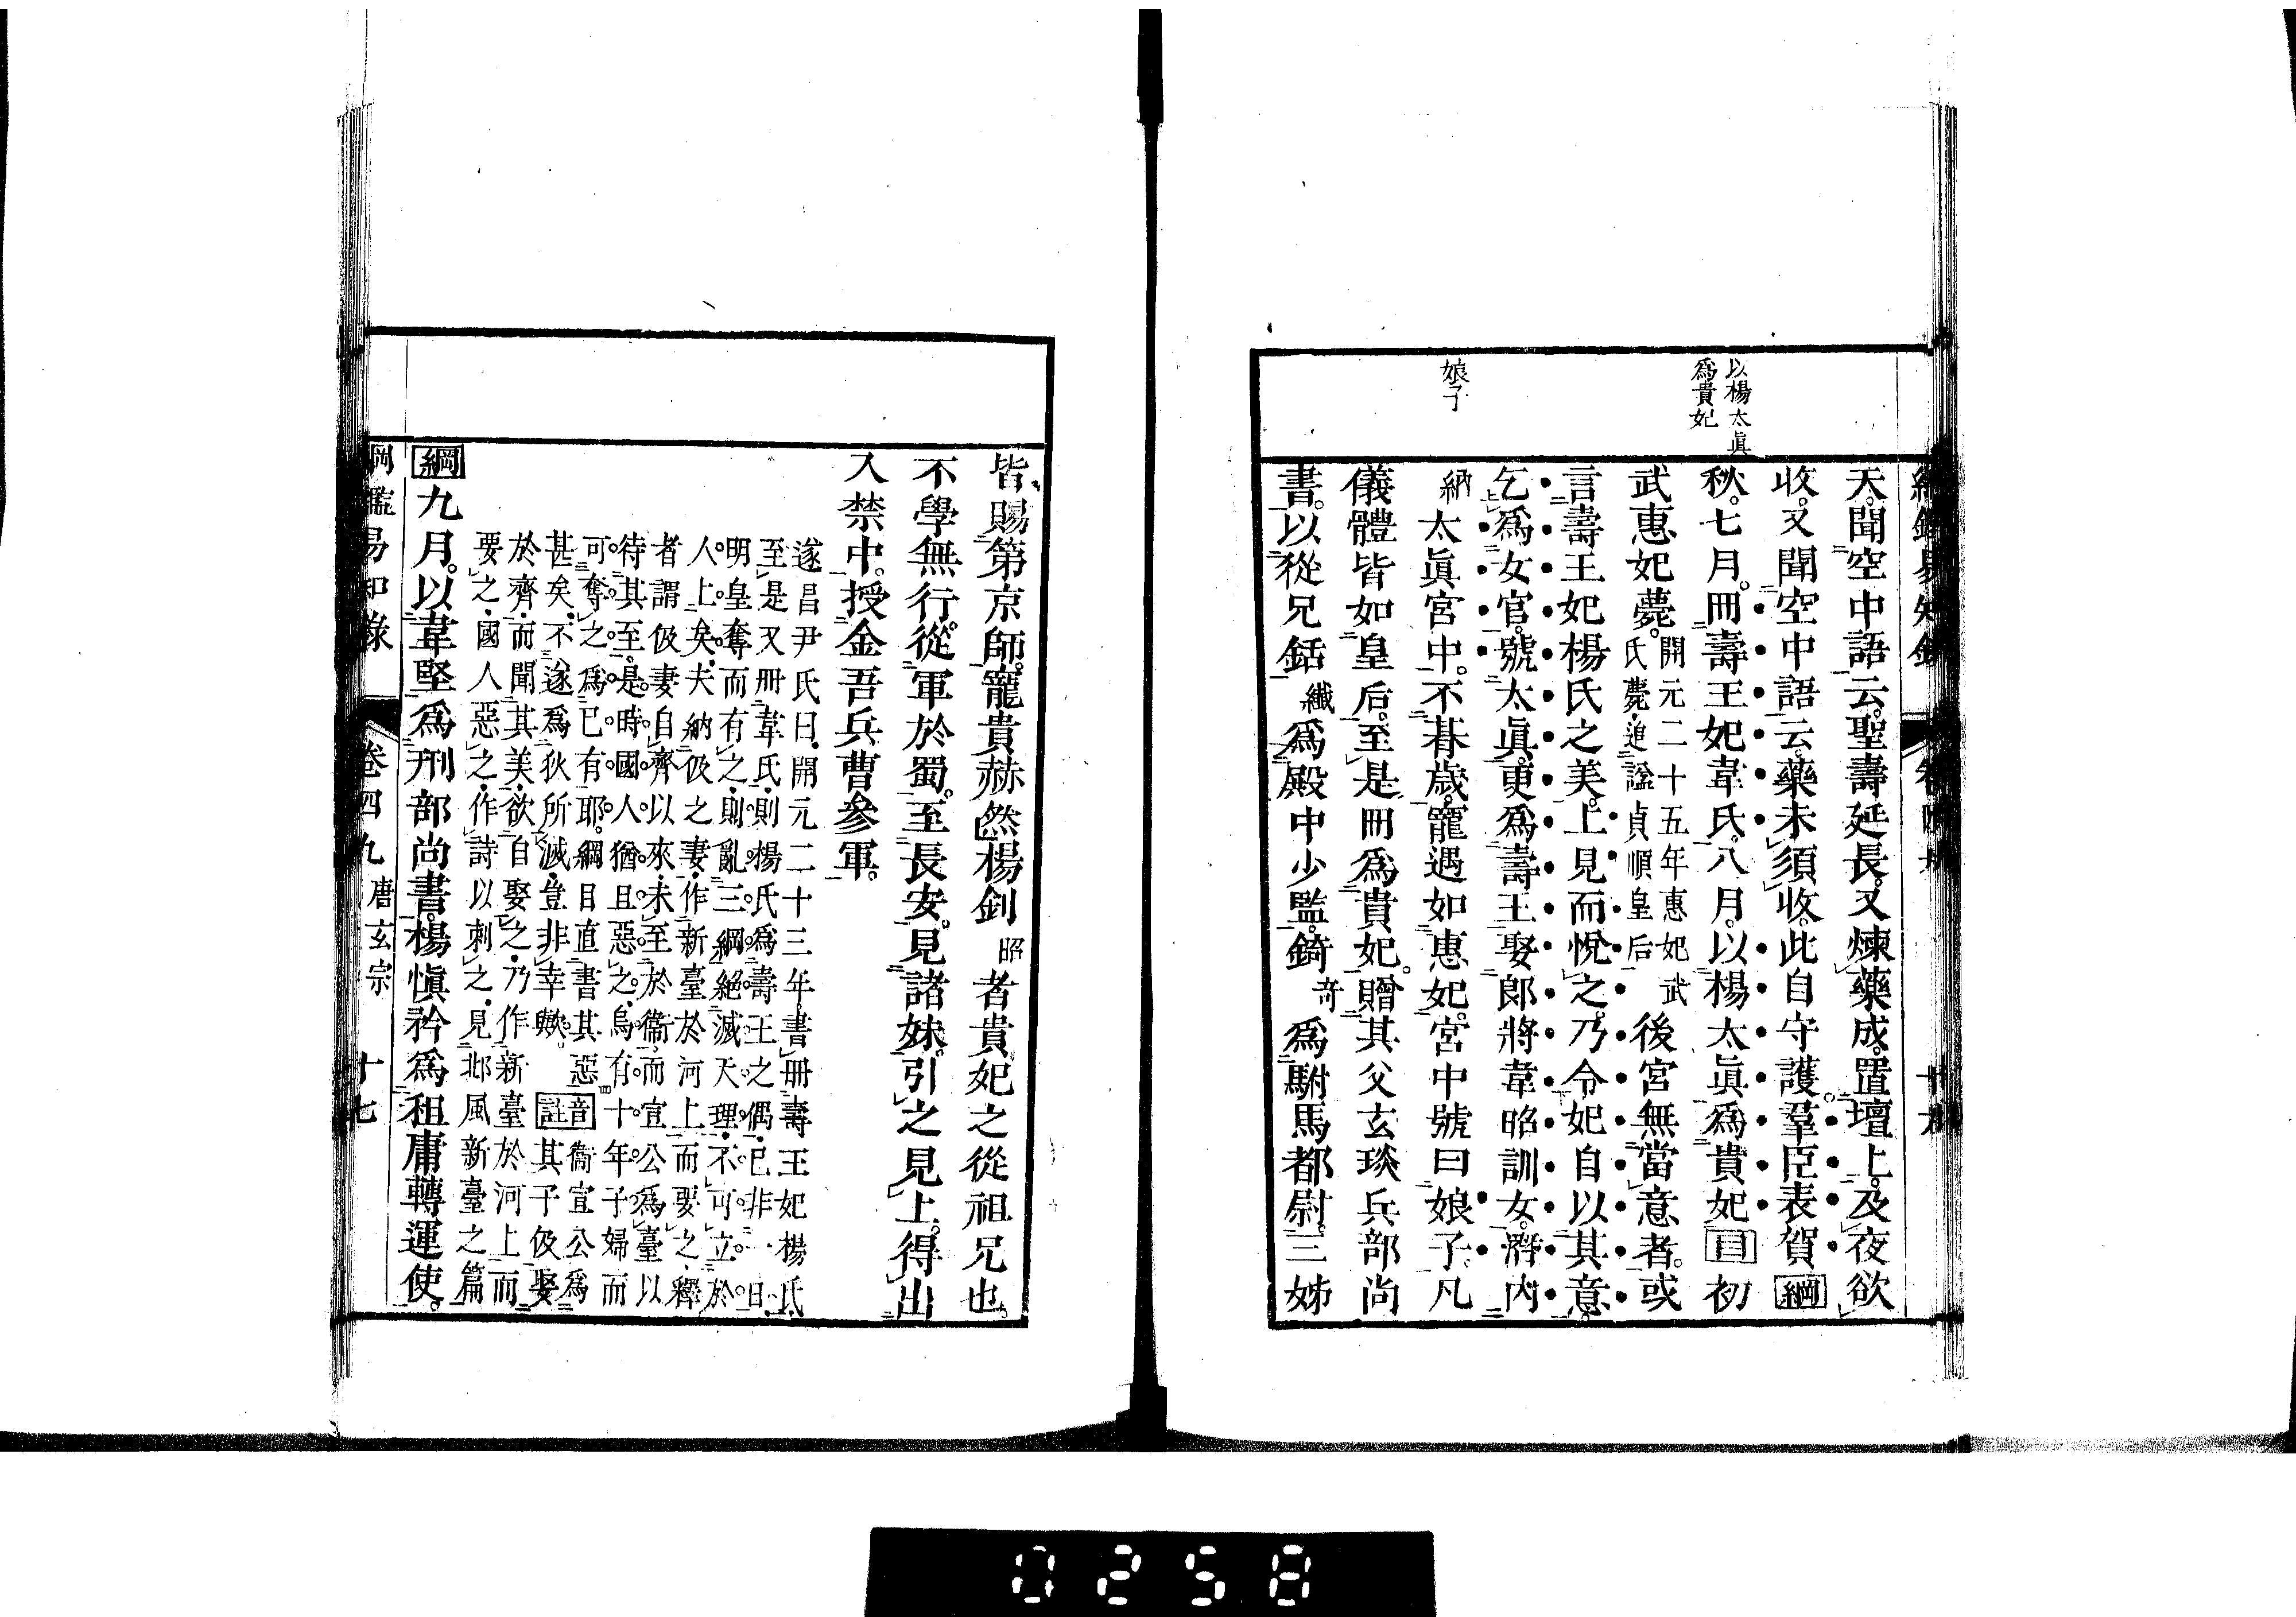 以楊太眞
爲貴妃
娘子
天。聞空中語云。聖壽延長。又煉藥成。置壇上。及夜欲
收。又聞空中語云。藥未須收。此自守護。羣臣表賀綱
秋。七月。冊壽王妃韋氏。八月。以楊太眞爲貴妃目初
武惠妃薨。開元二十五年惠妃武
氏薨。追諡貞順皇后後宮無當意者。或
言壽王妃楊氏之美。上見而悅之。乃令妃自以其意
乞爲女官。號太眞。更爲壽王娶郎將韋昭訓女。潛內
納太眞宮中。不朞歲。寵遇如惠妃。宮中號曰娘子。凡
儀體皆如皇后。至是冊爲貴妃。贈其父玄琰兵部尚
書。以從兄銛纖爲殿中少監。錡奇爲駙馬都尉。三姊
皆賜第京師。寵貴赫然楊釗昭者貴妃之從祖兄也。
不學無行。從軍於蜀。至長安。見諸妹。引之見上。得出
入禁中。授金吾兵曹參軍。
遂昌尹氏曰。開元二十三年。書冊壽王妃楊氏。
至是又冊韋氏。則楊氏爲壽王之偶。已非一日。
明皇奪而有之。則亂三綱絕滅天理。不可立於
人上矣。夫納伋之妻。作新臺於河上而要之。釋
者謂伋妻自齊以來。未至於衞。而宣公爲臺以
待其至。是時國人猶且惡之。烏有十年子婦而
可奪之爲已有耶。綱目直書其惡
甚矣。不遂爲狄所滅。豈非幸歟。音註衞宣公爲
其子伋娶
於齊。而聞其美。欲自娶之。乃作新臺於河上而
要之。國人惡之。作詩以刺之。見邶風新臺之篇
綱九月。以韋堅爲刑部尚書。楊愼矜爲租庸轉運使。
綱鑑易知錄 卷四九 唐玄宗 十七
0258